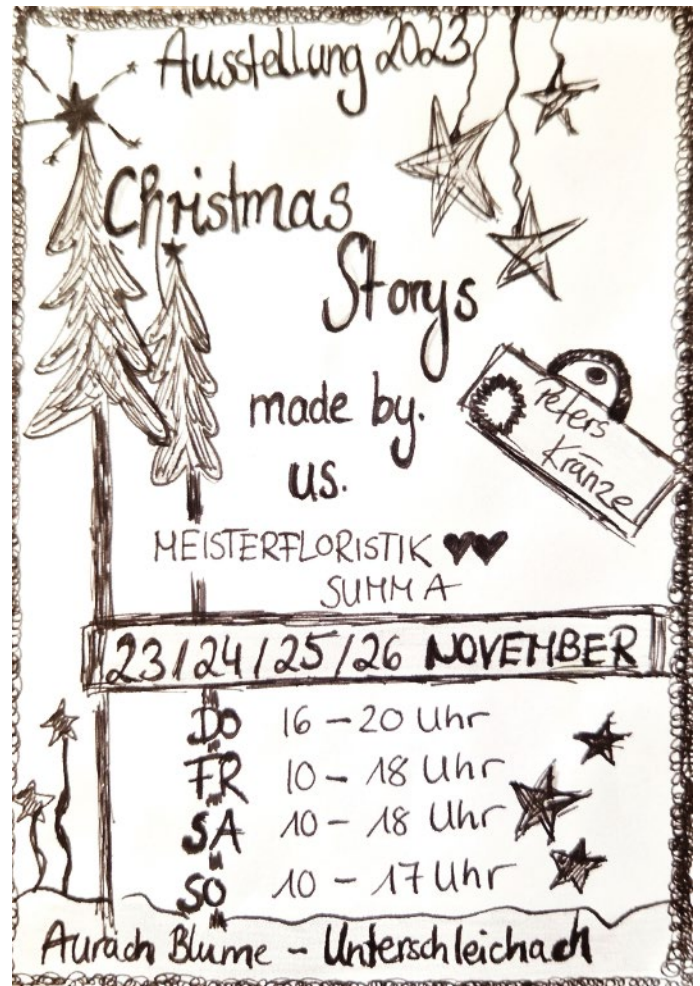 Ausstellung 2023
Christmas
Storys
made by.
us.
Peters
Kränze
MEISTERFLORISTIK
SUMMA
23/24/25/26 NOVEMBER
DO 16 – 20 Uhr
FR 10 – 18 Uhr
SA 10 – 18 Uhr
SO 10 – 17 Uhr
Aurach Blume – Unterschleichach